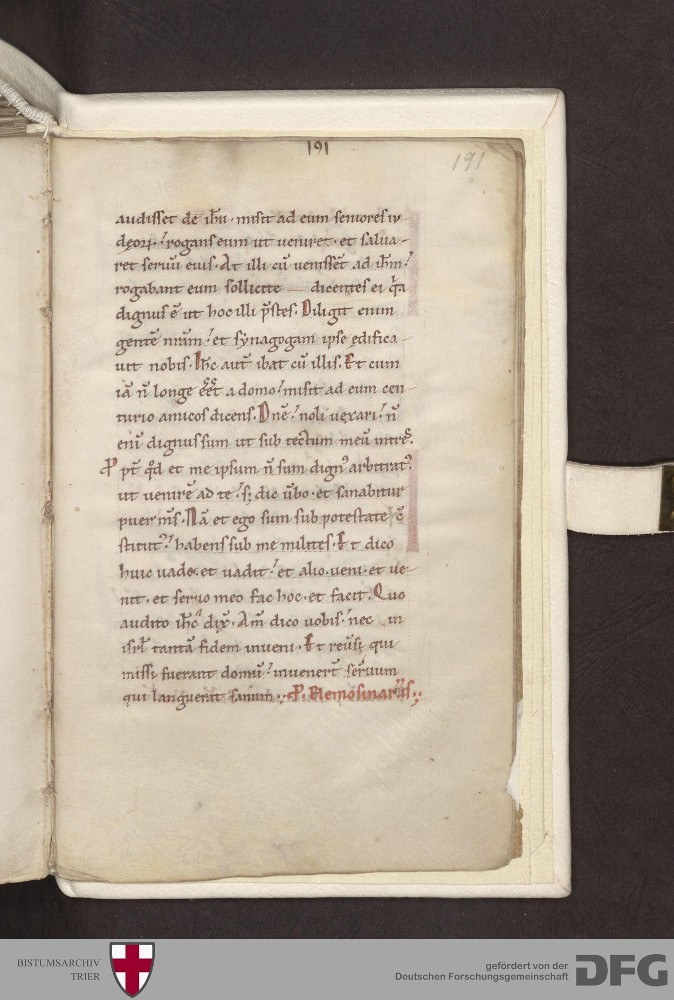 191
191
audisset de ih̅u · misit ad eum seniores iu
deoꝝ · rogans eum ut ueniret · et salua-
ret seruu̅ eius · At illi cu̅ uenisse̅t ad ih̅m
rogabant eum sollicite dicentes ei q̅a
dignus e̅ ut hoc illi p̅stes · Diligit enim
gente̅ nr̅am · et synagogam ipse ędifica-
uit nobis · Ih̅c aut̅ ibat cu̅ illis · Et cum
ia̅ n̅ longe e̅e̅t a domo · misit ad eum cen
turio amicos dicens · Dn̅e · noli uexari · n̅
eni̅ dignus sum ut sub tectum meu̅ intres̅ ·
Ꝓpt̅ qd̅ et me ipsum n̅ sum dignꝰ arbitratꝰ
ut uenire̅ ad te · sꝫ dic u̅bo · et sanabitur
puer m̅s · Na̅ et ego sum sub potestate c̅
stitutꝰ · habens sub me milites · Et dico
huic uade · et uadit · et alio · ueni · et ue-
nit · et seruo meo fac hoc · et facit · Quo
audito ih̅c dix̅ · Am̅ dico uobis · nec in
isrl̅ tanta̅ fidem inueni · Et reu̅si qui
missi fuerant domu̅ · inuener̅t seruum
qui languerat sanum · P̅. Elemosinariis ·
BISTUMSARCHIV
TRIER
gefördert von der
Deutschen Forschungsgemeinschaft
DFG